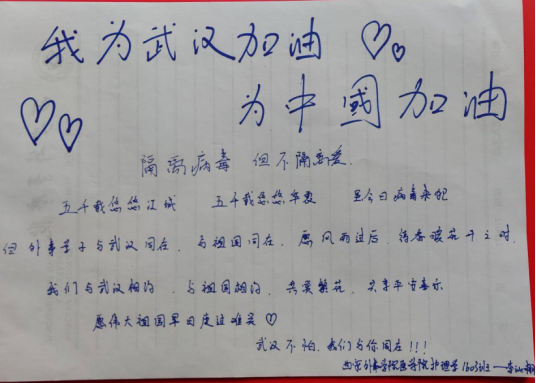 我为武汉加油
为中國加油
隔离病毒 但不隔离爱.
五千载悠悠江城 五千载悠悠华夏 虽今日病毒来犯
但外事学子与武汉同在, 与祖国同在, 愿风雨过后, 待春暖花开之时,
我们与武汉相约, 与祖国相约, 共赏繁花, 共享平安喜乐
愿伟大祖国早日度过难关
武汉不怕, 我们与你同在!!!
西安外事学院医学院护理学1603班